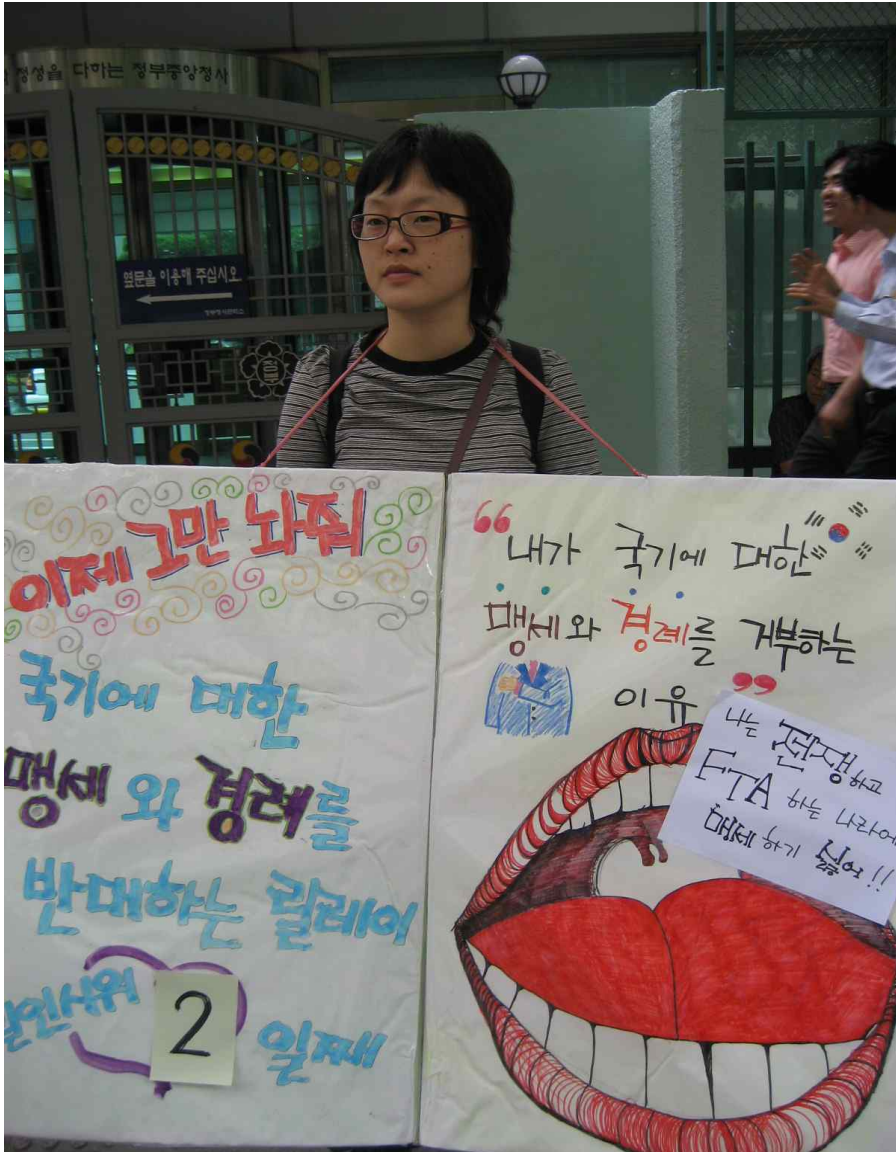 정성을 다하는 정부중앙청사
옆문을 이용해 주십시오.
이제 그만 놔줘
국기에 대한
맹세와 경례를
반대하는 릴레이
일인시위 2 일째
“내가 국기에 대한
맹세와 경례를 거부하는
이유”
나는 전쟁하고
FTA 하는 나라에
맹세하기 싫어!!